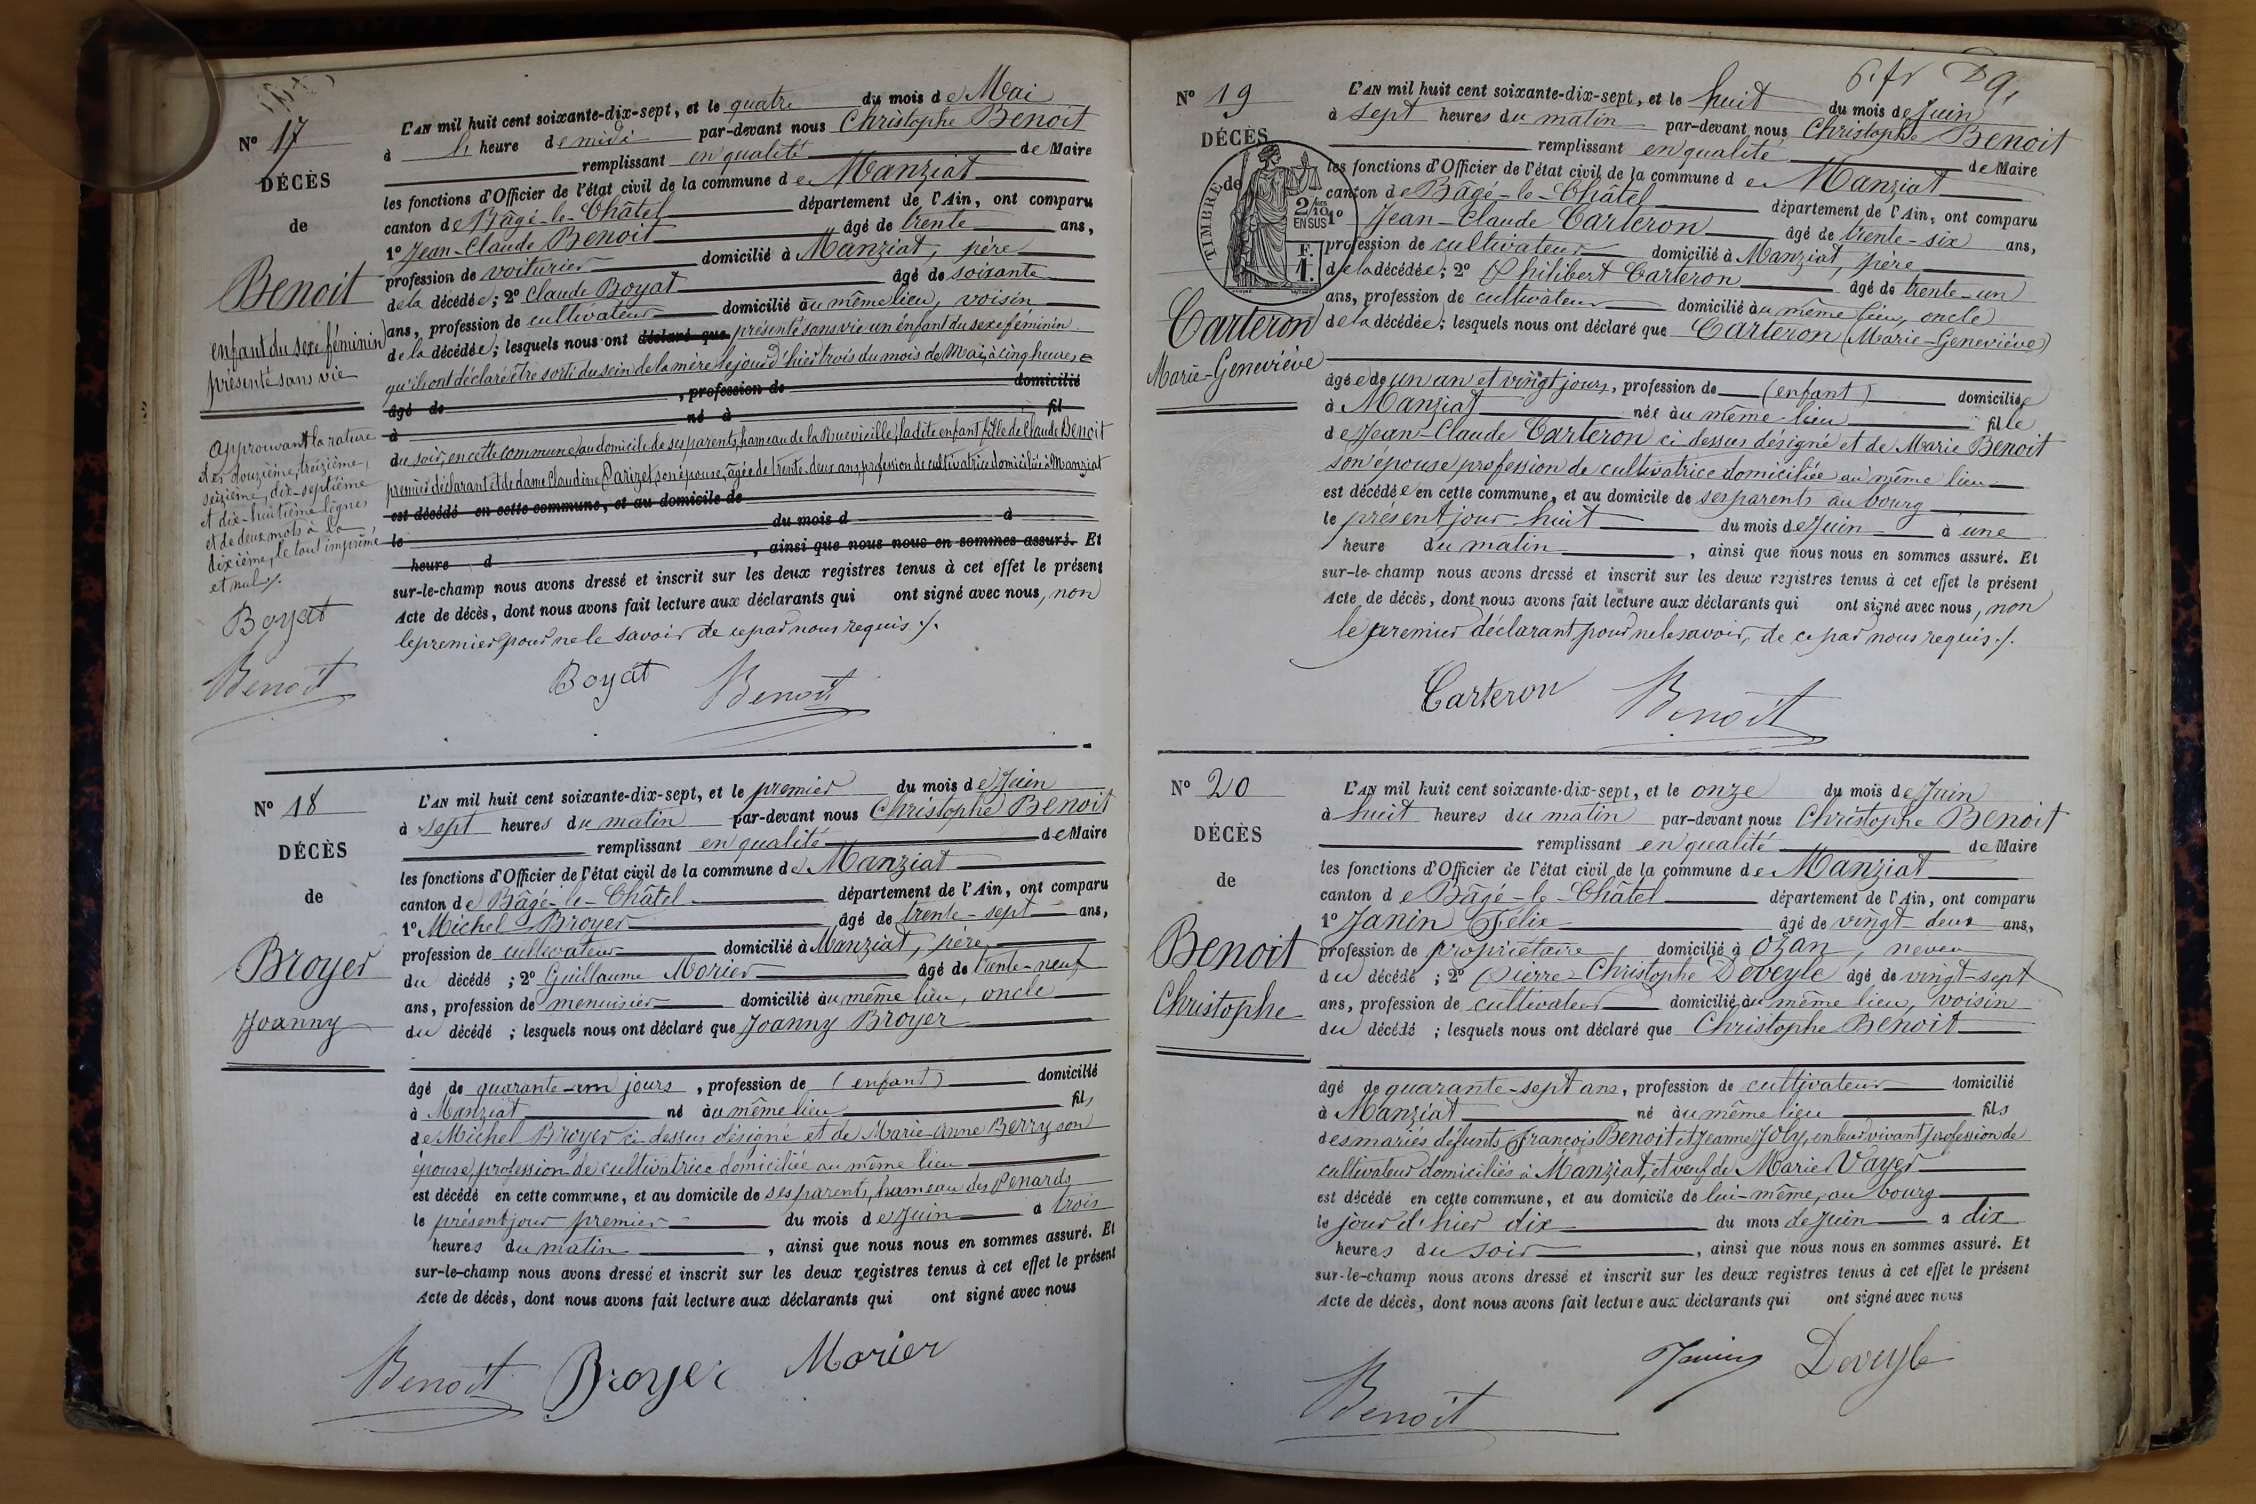 N° 17
DÉCÈS
de
Benoit
enfant du sexe féminin
présenté sans vie
Approuvant la rature
des douzième, treizième,
seizième, dix-septième
et dix-huitième lignes
et de deux mots à la
dixième, le tout imprimé
et nul ./.
Boyat
Benoît
L'AN mil huit cent soixante-dix-sept, et le quatre du mois de Mai
à heure de midi par-devant nous Christophe Benoit
remplissant en qualité de Maire
les fonctions d'Officier de l'état civil de la commune de Manziat
canton de Bâgé-le-Châtel département de l'Ain, ont comparu
1° Jean-Claude Benoit âgé de trente ans,
profession de voiturier domicilié à Manziat, père
de la décédée; 2° Claude Boyat âgé de soixante
ans, profession de cultivateur domicilié au même lieu, voisin
de la décédée; lesquels nous ont déclaré que présenté sans vie un enfant du sexe féminin
qu'ils ont déclaré être sorti du sein de la mère le jour d'hier trois du mois de Mai, à cinq heures
âgé de , profession de domicilié
à né à fil
du soir, en cette commune, au domicile de ses parents, hameau de la Ruevieille, ladite enfant fille de Claude Benoit
premier déclarant et de dame Claudine Darizet, son épouse, âgée de trente-deux ans, profession de cultivatrice domiciliée à Manziat
est décédé en cette commune, et au domicile de
le du mois d à
heure d , ainsi que nous nous en sommes assuré. Et
sur-le-champ nous avons dressé et inscrit sur les deux registres tenus à cet effet le présent
Acte de décès, dont nous avons fait lecture aux déclarants qui ont signé avec nous, non
le premier pour ne le savoir de ce par nous requis ./.
Boyat Benoît
N° 18
DÉCÈS
de
Broyer
Joanny
L'AN mil huit cent soixante-dix-sept, et le premier du mois de Juin
à sept heures du matin par-devant nous Christophe Benoit
remplissant en qualité de Maire
les fonctions d'Officier de l'état civil de la commune de Manziat
canton de Bâgé-le-Châtel département de l'Ain, ont comparu
1° Michel Broyer âgé de trente-sept ans,
profession de cultivateur domicilié à Manziat, père
du décédé ; 2° Guillaume Morier âgé de trente-neuf
ans, profession de menuisier domicilié au même lieu, oncle
du décédé ; lesquels nous ont déclaré que Joanny Broyer
âgé de quarante-un jours , profession de (enfant) domicilié
à Manziat né au même lieu fils
de Michel Broyer ci-dessus désigné et de Marie-Anne Berry son
épouse, profession de cultivatrice domiciliée au même lieu
est décédé en cette commune, et au domicile de ses parents, hameau des Penards
le présent jour premier du mois de Juin à trois
heures du matin , ainsi que nous nous en sommes assuré. Et
sur-le-champ nous avons dressé et inscrit sur les deux registres tenus à cet effet le présent
Acte de décès, dont nous avons fait lecture aux déclarants qui ont signé avec nous
Benoît Broyer Morier
6. fr D 9.
N° 19
DÉCÈS
de
TIMBRE
2/10 EN SUS
F. 1.
Carteron
Marie-Geneviève
L'AN mil huit cent soixante-dix-sept, et le huit du mois de Juin
à sept heures du matin par-devant nous Christophe Benoit
remplissant en qualité de Maire
les fonctions d'Officier de l'état civil de la commune de Manziat
canton de Bâgé-le-Châtel département de l'Ain, ont comparu
1° Jean-Claude Carteron âgé de trente-six ans,
profession de cultivateur domicilié à Manziat, père
de la décédée; 2° Philibert Carteron âgé de trente-un
ans, profession de cultivateur domicilié au même lieu, oncle
de la décédée; lesquels nous ont déclaré que Carteron (Marie-Geneviève)
âgée de un an et vingt jours, profession de (enfant) domiciliée
à Manziat née au même lieu fille
de Jean-Claude Carteron ci-dessus désigné et de Marie Benoit
son épouse, profession de cultivatrice domiciliée au même lieu
est décédée en cette commune, et au domicile de ses parents au bourg
le présent jour huit du mois de Juin à une
heure du matin , ainsi que nous nous en sommes assuré. Et
sur-le-champ nous avons dressé et inscrit sur les deux registres tenus à cet effet le présent
Acte de décès, dont nous avons fait lecture aux déclarants qui ont signé avec nous, non
le premier déclarant pour ne le savoir, de ce par nous requis ./.
Carteron Benoît
N° 20
DÉCÈS
de
Benoit
Christophe
L'AN mil huit cent soixante-dix-sept, et le onze du mois de Juin
à huit heures du matin par-devant nous Christophe Benoit
remplissant en qualité de Maire
les fonctions d'Officier de l'état civil de la commune de Manziat
canton de Bâgé-le-Châtel département de l'Ain, ont comparu
1° Janin Félix âgé de vingt-deux ans,
profession de propriétaire domicilié à Ozan, neveu
du décédé ; 2° Pierre-Christophe Deveyle âgé de vingt-sept
ans, profession de cultivateur domicilié au même lieu, voisin
du décédé ; lesquels nous ont déclaré que Christophe Benoit
âgé de quarante-sept ans, profession de cultivateur domicilié
à Manziat né au même lieu fils
des mariés défunts François Benoit et Jeanne Joly, en leur vivant profession de
cultivateur domiciliés à Manziat, et veuf de Marie Vayer
est décédé en cette commune, et au domicile de lui-même, au bourg
le jour d'hier dix du mois de Juin à dix
heures du soir , ainsi que nous nous en sommes assuré. Et
sur-le-champ nous avons dressé et inscrit sur les deux registres tenus à cet effet le présent
Acte de décès, dont nous avons fait lecture aux déclarants qui ont signé avec nous
Janin Deveyle
Benoît